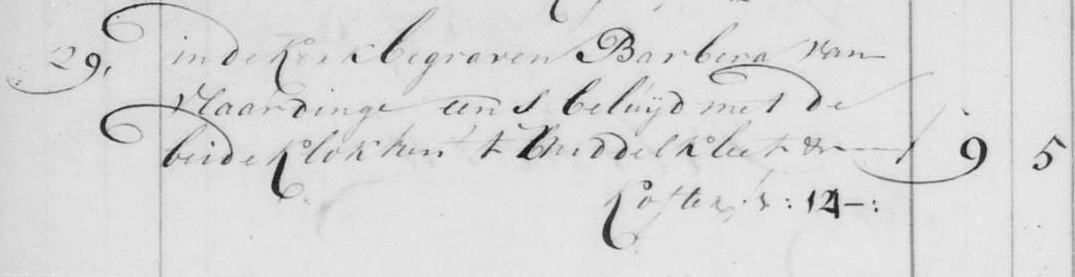 29, in de Kerk begraven Barbera van
Vlaardinge eens beluyd met de
beide Klokken 't Middelkleet &
9 5
Koster : 12 - :